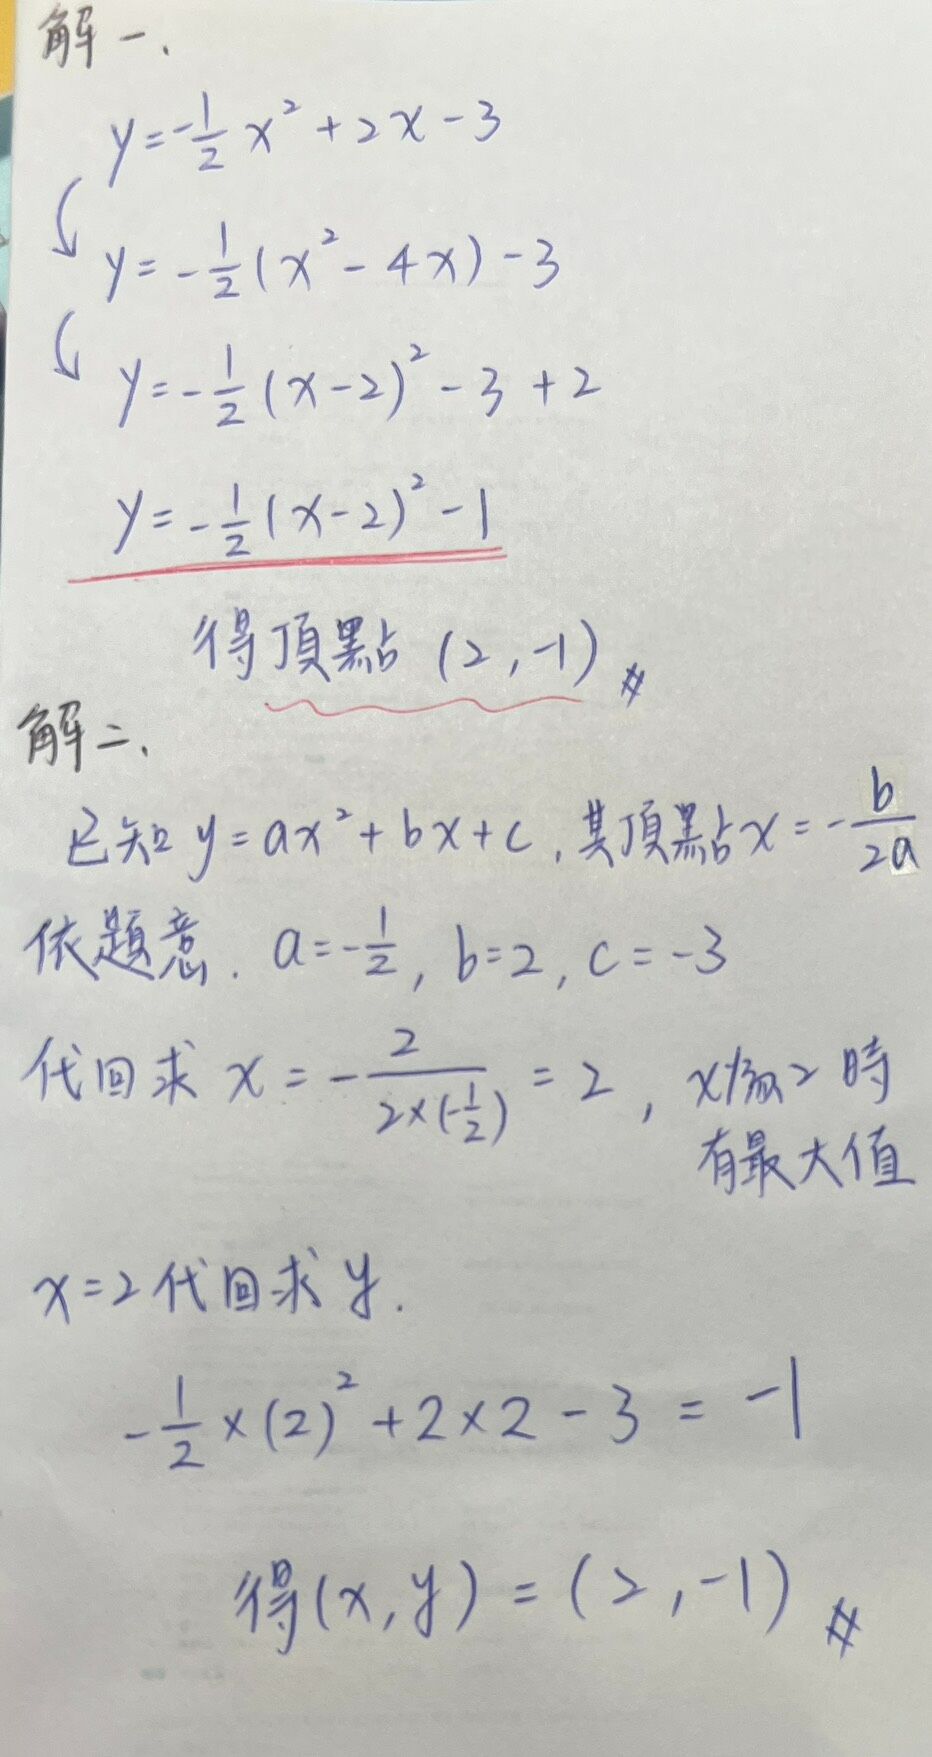 解一、
y=-1/2 x²+2x-3
y=-1/2(x²-4x)-3
y=-1/2(x-2)²-3+2
y=-1/2(x-2)²-1
得頂點(2,-1)#
解二、
已知y=ax²+bx+c,其頂點x=-b/2a
依題意.a=-1/2,b=2,c=-3
代回求x=-2/2×(-1/2)=2,x為2時
有最大值
x=2代回求y.
-1/2×(2)²+2×2-3=-1
得(x,y)=(2,-1)#